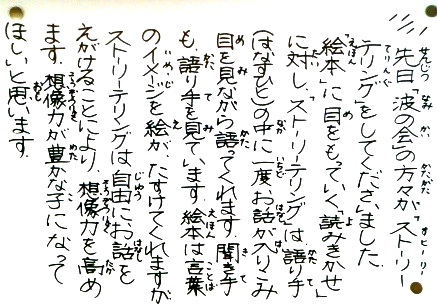 先日「波の会の方々が」ストーリー
テリング」をしてくださいました.
「絵本」に目をもっていく「読みきかせ」
に対し、ストーリーテリングは、語り手
(はなすひと)の中に一度お話が入りこみ
目を見ながら語ってくれます。聞き手
も、語り手を見ています。絵本は言葉
のイメージを絵が、たすけてくれますが
ストーリーテリングは自由にお話を
えがけることにより、想像力を高め
ます。想像力が豊かな子になって
ほしいと思います.